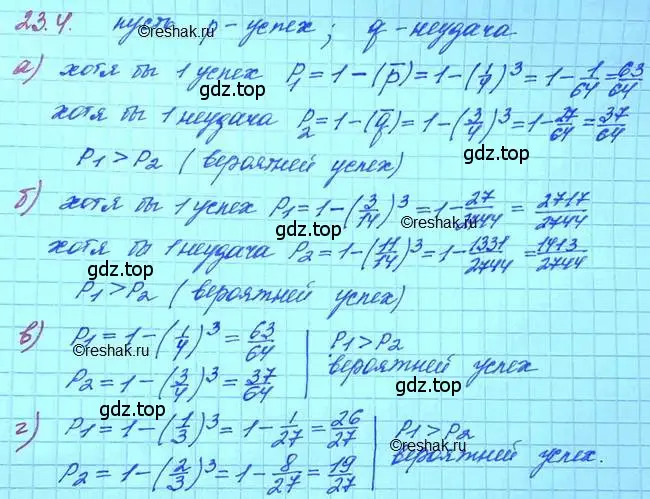 23.4. пусть p - успех; q - неудача
©reshak.ru
а) хотя бы 1 успех P₁ = 1 - (p̅) = 1 - (1/4)³ = 1 - 1/64 = 63/64
gdz.top
хотя бы 1 неудача P₂ = 1 - (q̅) = 1 - (3/4)³ = 1 - 27/64 = 37/64
©reshak.ru
P₁ > P₂ (вероятней успех)
gdz.top
б) хотя бы 1 успех P₁ = 1 - (3/14)³ = 1 - 27/2744 = 2717/2744
gdz.top ©reshak.ru
хотя бы 1 неудача P₂ = 1 - (11/14)³ = 1 - 1331/2744 = 1413/2744
gdz.top gdz.top
P₁ > P₂ (вероятней успех)
в) P₁ = 1 - (1/4)³ = 63/64 | P₁ > P₂
©reshak.ru
вероятней успех
P₂ = 1 - (3/4)³ = 37/64
©reshak.ru
gdz.top gdz.top
г) P₁ = 1 - (1/3)³ = 1 - 1/27 = 26/27 | P₁ > P₂
©reshak.ru
вероятней успех.
P₂ = 1 - (2/3)³ = 1 - 8/27 = 19/27
gdz.top